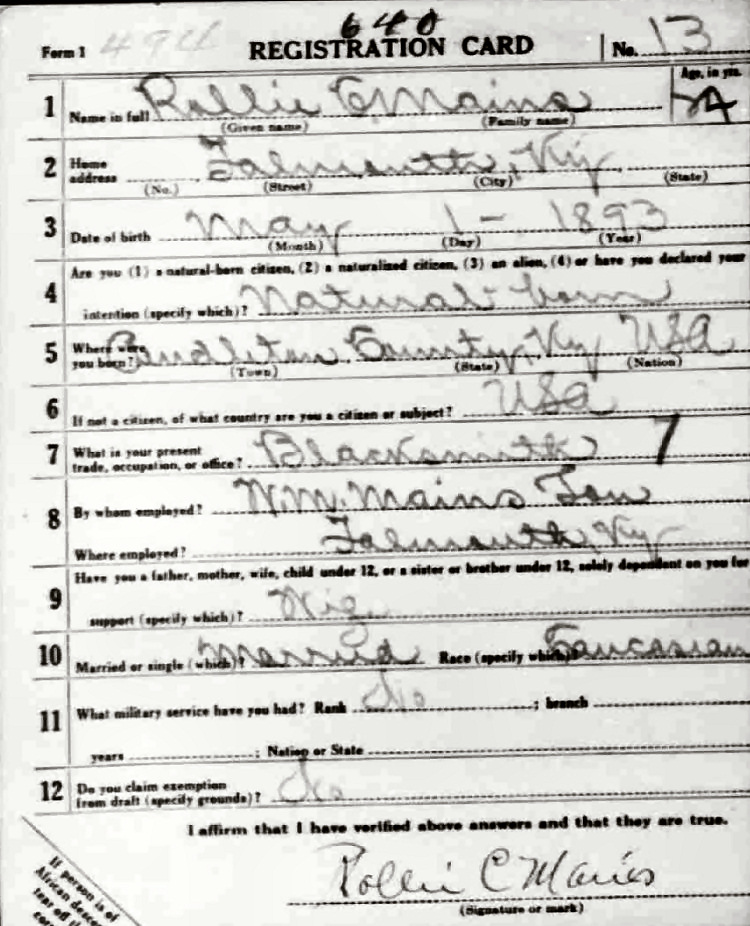 640
Form 1 494 REGISTRATION CARD No. 13
Age, in yrs.
1 Name in full Rollie C Mains 24
(Given name) (Family name)
2 Home address Falmouth, Ky
(No.) (Street) (City) (State)
3 Date of birth May 1 - 1893
(Month) (Day) (Year)
Are you (1) a natural-born citizen, (2) a naturalized citizen, (3) an alien, (4) or have you declared your
4 intention (specify which)? Natural-born
5 Where were you born? Pendleton County, Ky USA
(Town) (State) (Nation)
6 If not a citizen, of what country are you a citizen or subject? USA
7 What is your present trade, occupation, or office? Blacksmith 7
8 By whom employed? W.M. Mains
Where employed? Falmouth, Ky
Have you a father, mother, wife, child under 12, or a sister or brother under 12, solely dependent on you for
9 support (specify which)?
10 Married or single (which)? Married Race (specify which)? Caucasian
11 What military service have you had? Rank No ; branch
years ; Nation or State
12 Do you claim exemption from draft (specify grounds)? No
I affirm that I have verified above answers and that they are true.
Rollie C Mains
(Signature or mark)
If person is of
African desce
tear off th
cor